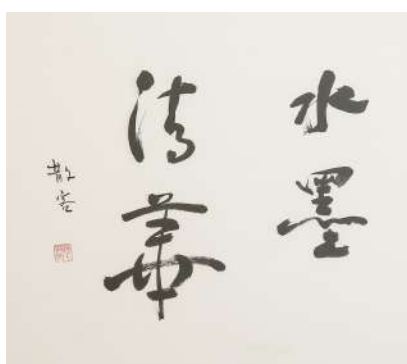 水墨
清華
散客